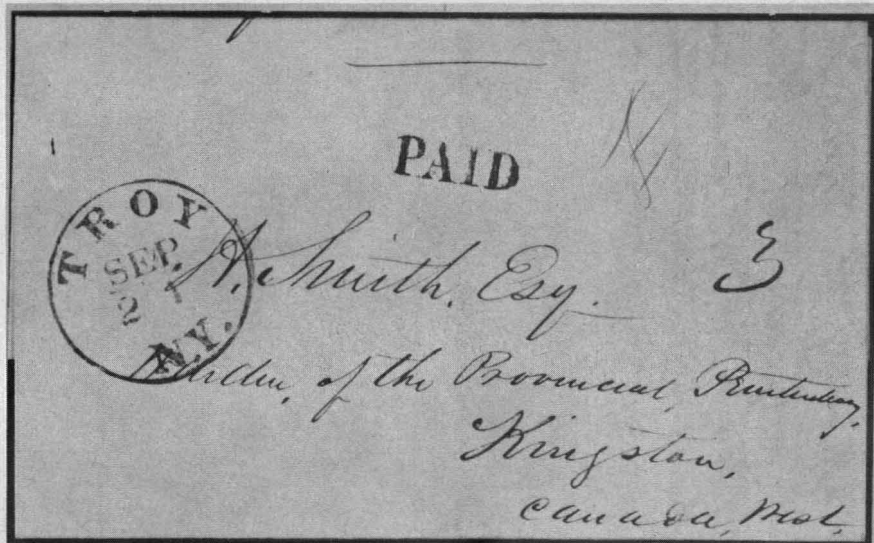 PAID
TROY
SEP.
N.Y.
H. Smith, Esq.
3
Warden, of the Provincial, Penitentiary,
Kingston,
Canada, West,